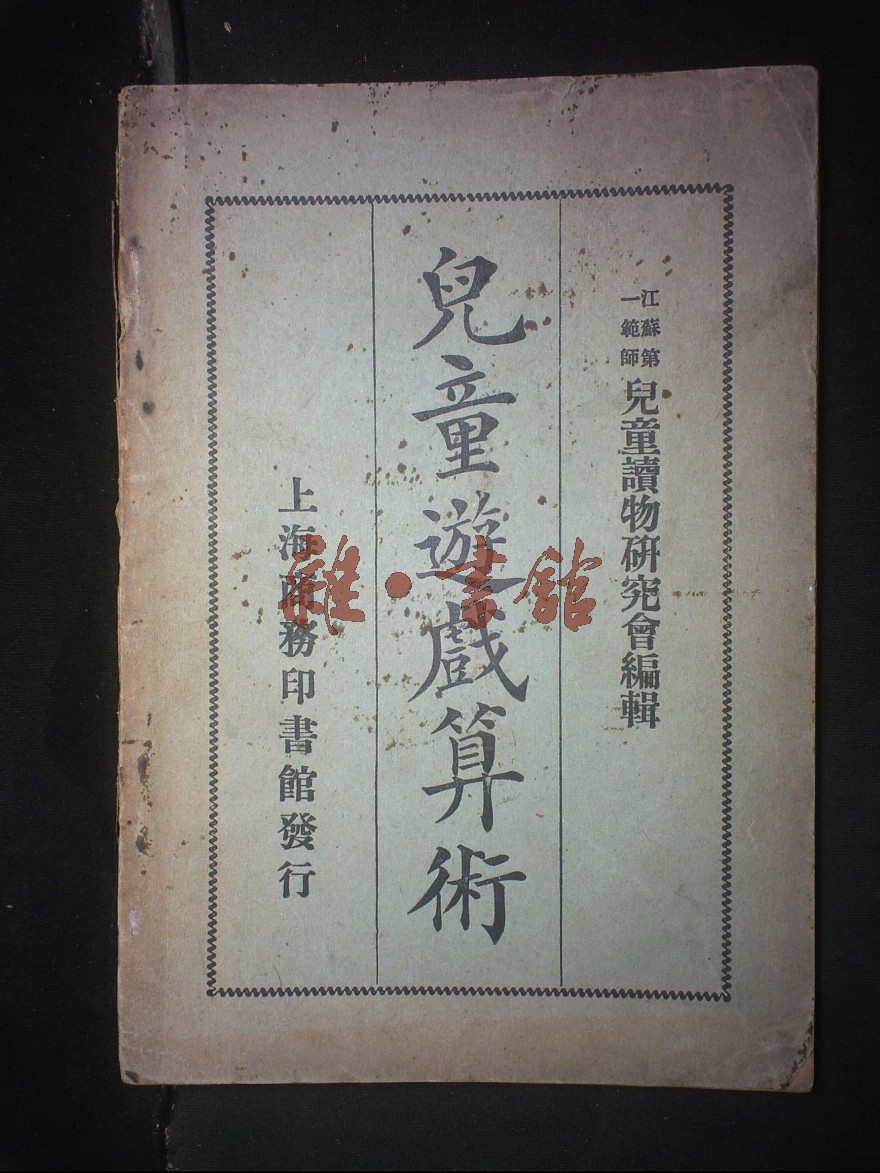 江蘇第
一師範
兒童讀物研究會編輯
兒童遊戲算術
上海商務印書館發行
雜·書館